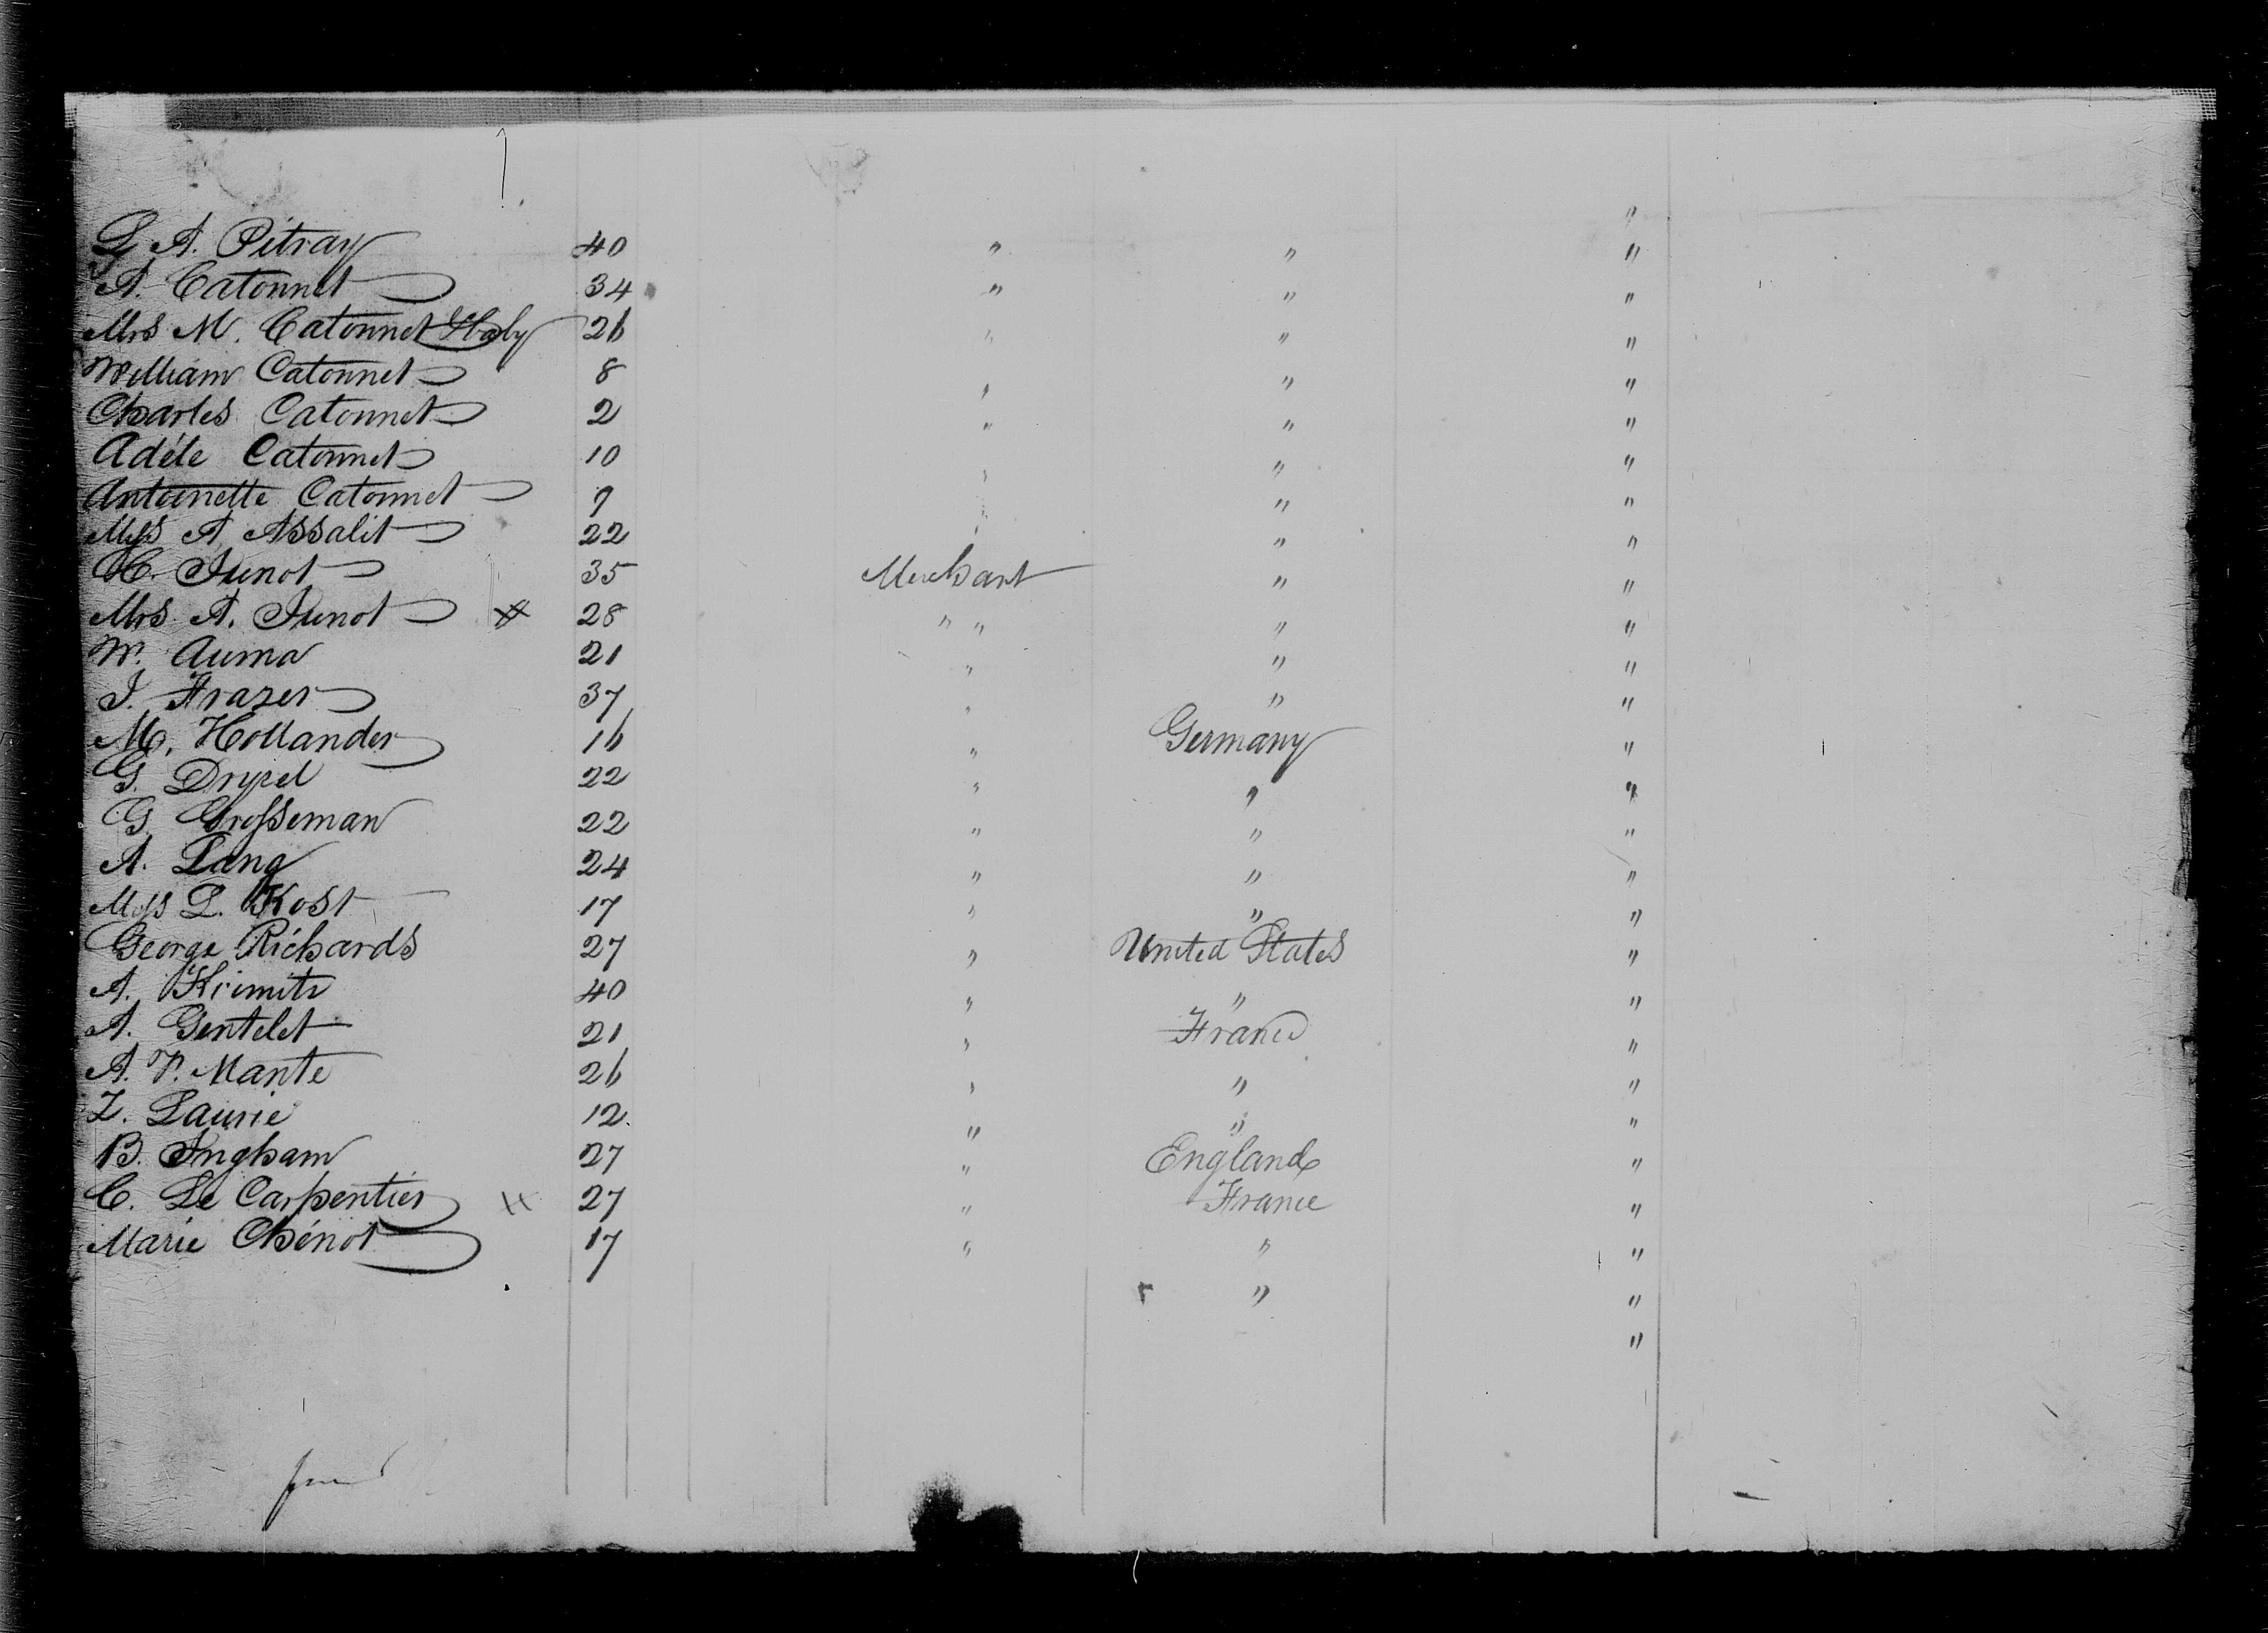 "
L. A. Pitray 40 " " "
A. Catonnet 34 " " "
Mrs M. Catonnet & baby 26 " " "
William Catonnet 8 " " "
Charles Catonnet 2 " " "
Adéle Catonnet 10 " " "
Antoinette Catonnet 7 " " "
Miss A. Assalit 22 " " "
C. Junot 35 Merchant " "
Mrs. A. Junot 28 " " " "
W. Auma 21 " " "
J. Frazer 37 " " "
M. Hollander 16 " Germany "
G. Drypel 22 " " "
G. Grosseman 22 " " "
A. Lang 24 " " "
Miss L. Kost 17 " " "
George Richards 27 " United States "
A. 40 " " "
A. Gentelet 21 " France "
A. P. Mante 26 " " "
Z. Laurie 12. " " "
B. Ingham 27 " England "
C. Le Carpentier 27 " France "
Marie Chénot 17 " " "
" "
"